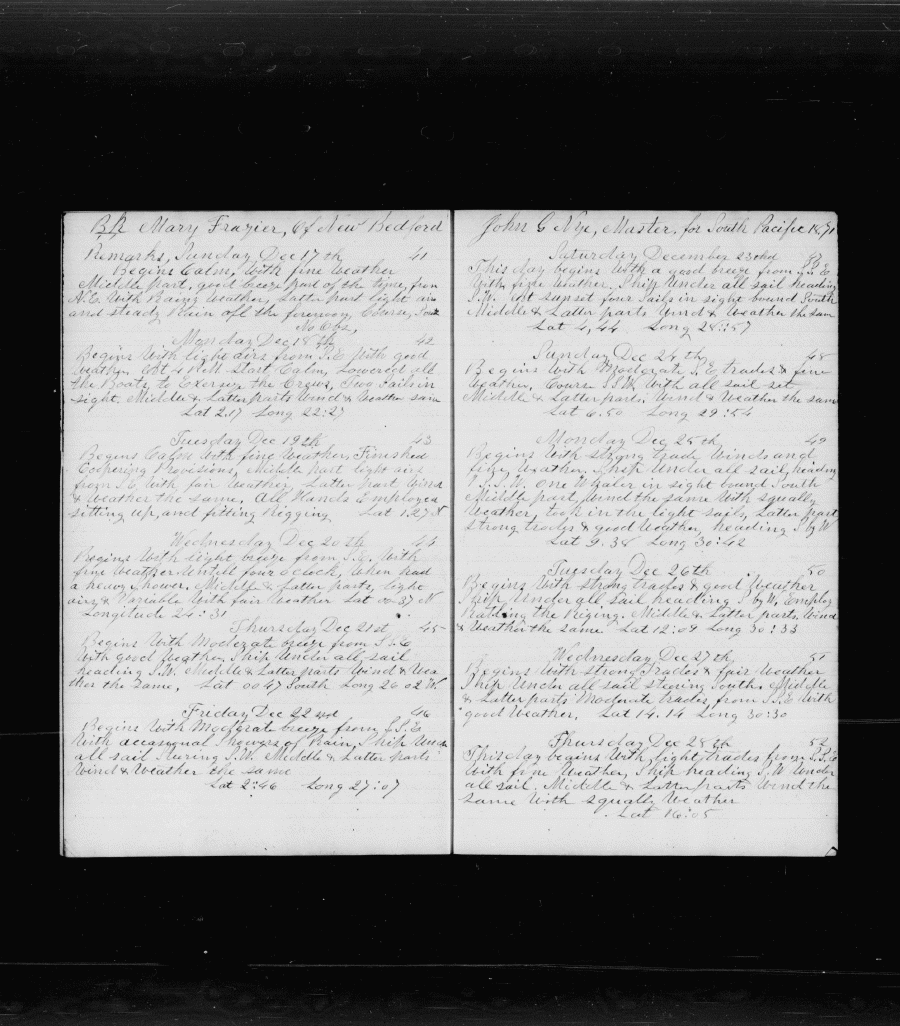 BR Mary Frazier, Of New Bedford
Remarks, Sunday Dec 17th 41
Begins Calm, With fine Weather
Middle part, good breeze part of the time, from
N.E. With Rainy Weather, Latter part light airs
and steady Rain all the forenoon, Course, South
No Obs,
Monday Dec 18th 42
Begins With light airs from S.E With good
Weather At 4 P.M. Start Calm, Lowered all
the Boats to Exersise the Crews, Two Sails in
sight. Middle & Latter parts Wind & Weather same
Lat 2.17 Long 22:27
Tuesday Dec 19th 43
Begins Calm With fine Weather, Finished
Coopering Provisions, Middle part light airs
from S.E. With fair Weather, Latter part Wind
& Weather the same, All Hands Employed
setting up, and fitting Rigging Lat 1.27 N
Wednesday Dec 20th 44
Begins With light breeze from S.E. With
fine Weather Untill four oclock, When had
a heavy shower. Middle & Latter parts, light
airs & Variable With fair Weather Lat 00.37 N
Longitude 24:31
Thursday Dec 21st 45
Begins With Moderate breeze from S.S.E
With good Weather, Ship Under all sail
heading S.W. Middle & Latter parts Wind & Wea
ther the same, Lat 00 47 South Long 26 02 W.
Friday Dec 22nd 46
Begins With Moderate breeze from S.S.E
With occasional Showers of Rain, Ship Under
all sail Stering S.W. Middle & Latter parts
Wind & Weather the same
Lat 2:46 Long 27:07
John G Nye, Master, for South Pacific 1871
Saturday December 23rd
This day begins With a good breeze from S.S.E
With fine Weather. Ship Under all sail heading
S.W. At sunset four Sails in sight bound South
Middle & Latter parts Wind & Weather the same
Lat 4,44 Long 28:57
Sunday Dec 24th 48
Begins With Moderate S.E trades & fine
Weather, Course S.S.W. With all sail set
Middle & Latter parts, Wind & Weather the same
Lat 6.50 Long 29:54
Monday Dec 25th 49
Begins With strong trade Winds and
fine Weather. Ship Under all sail, heading
S.S.W. One Whaler in sight bound South
Middle part, Wind the same With squally
Weather, took in the light sails, Latter part
strong trades & good Weather, heading S by W
Lat 9.38 Long 30:42
Tuesday Dec 26th 50
Begins With strong trades & good Weather
Ship Under all sail heading S by W. Employ
Ratling the Riging. Middle & Latter parts Wind
& Weather the same Lat 12:09 Long 30:33
Wednesday Dec 27th 51
Begins With strong Trades & fair Weather
Ship Under all sail stering South. Middle
& Latter parts Moderate trades, from S.S.E With
good Weather, Lat 14.14 Long 30:30
Thursday Dec 28th 52
This day begins With light trades from S.S.E
With fine Weather, Ship heading S.W Under
all sail. Middle & Latter parts Wind the
same With squally Weather
Lat 16:05